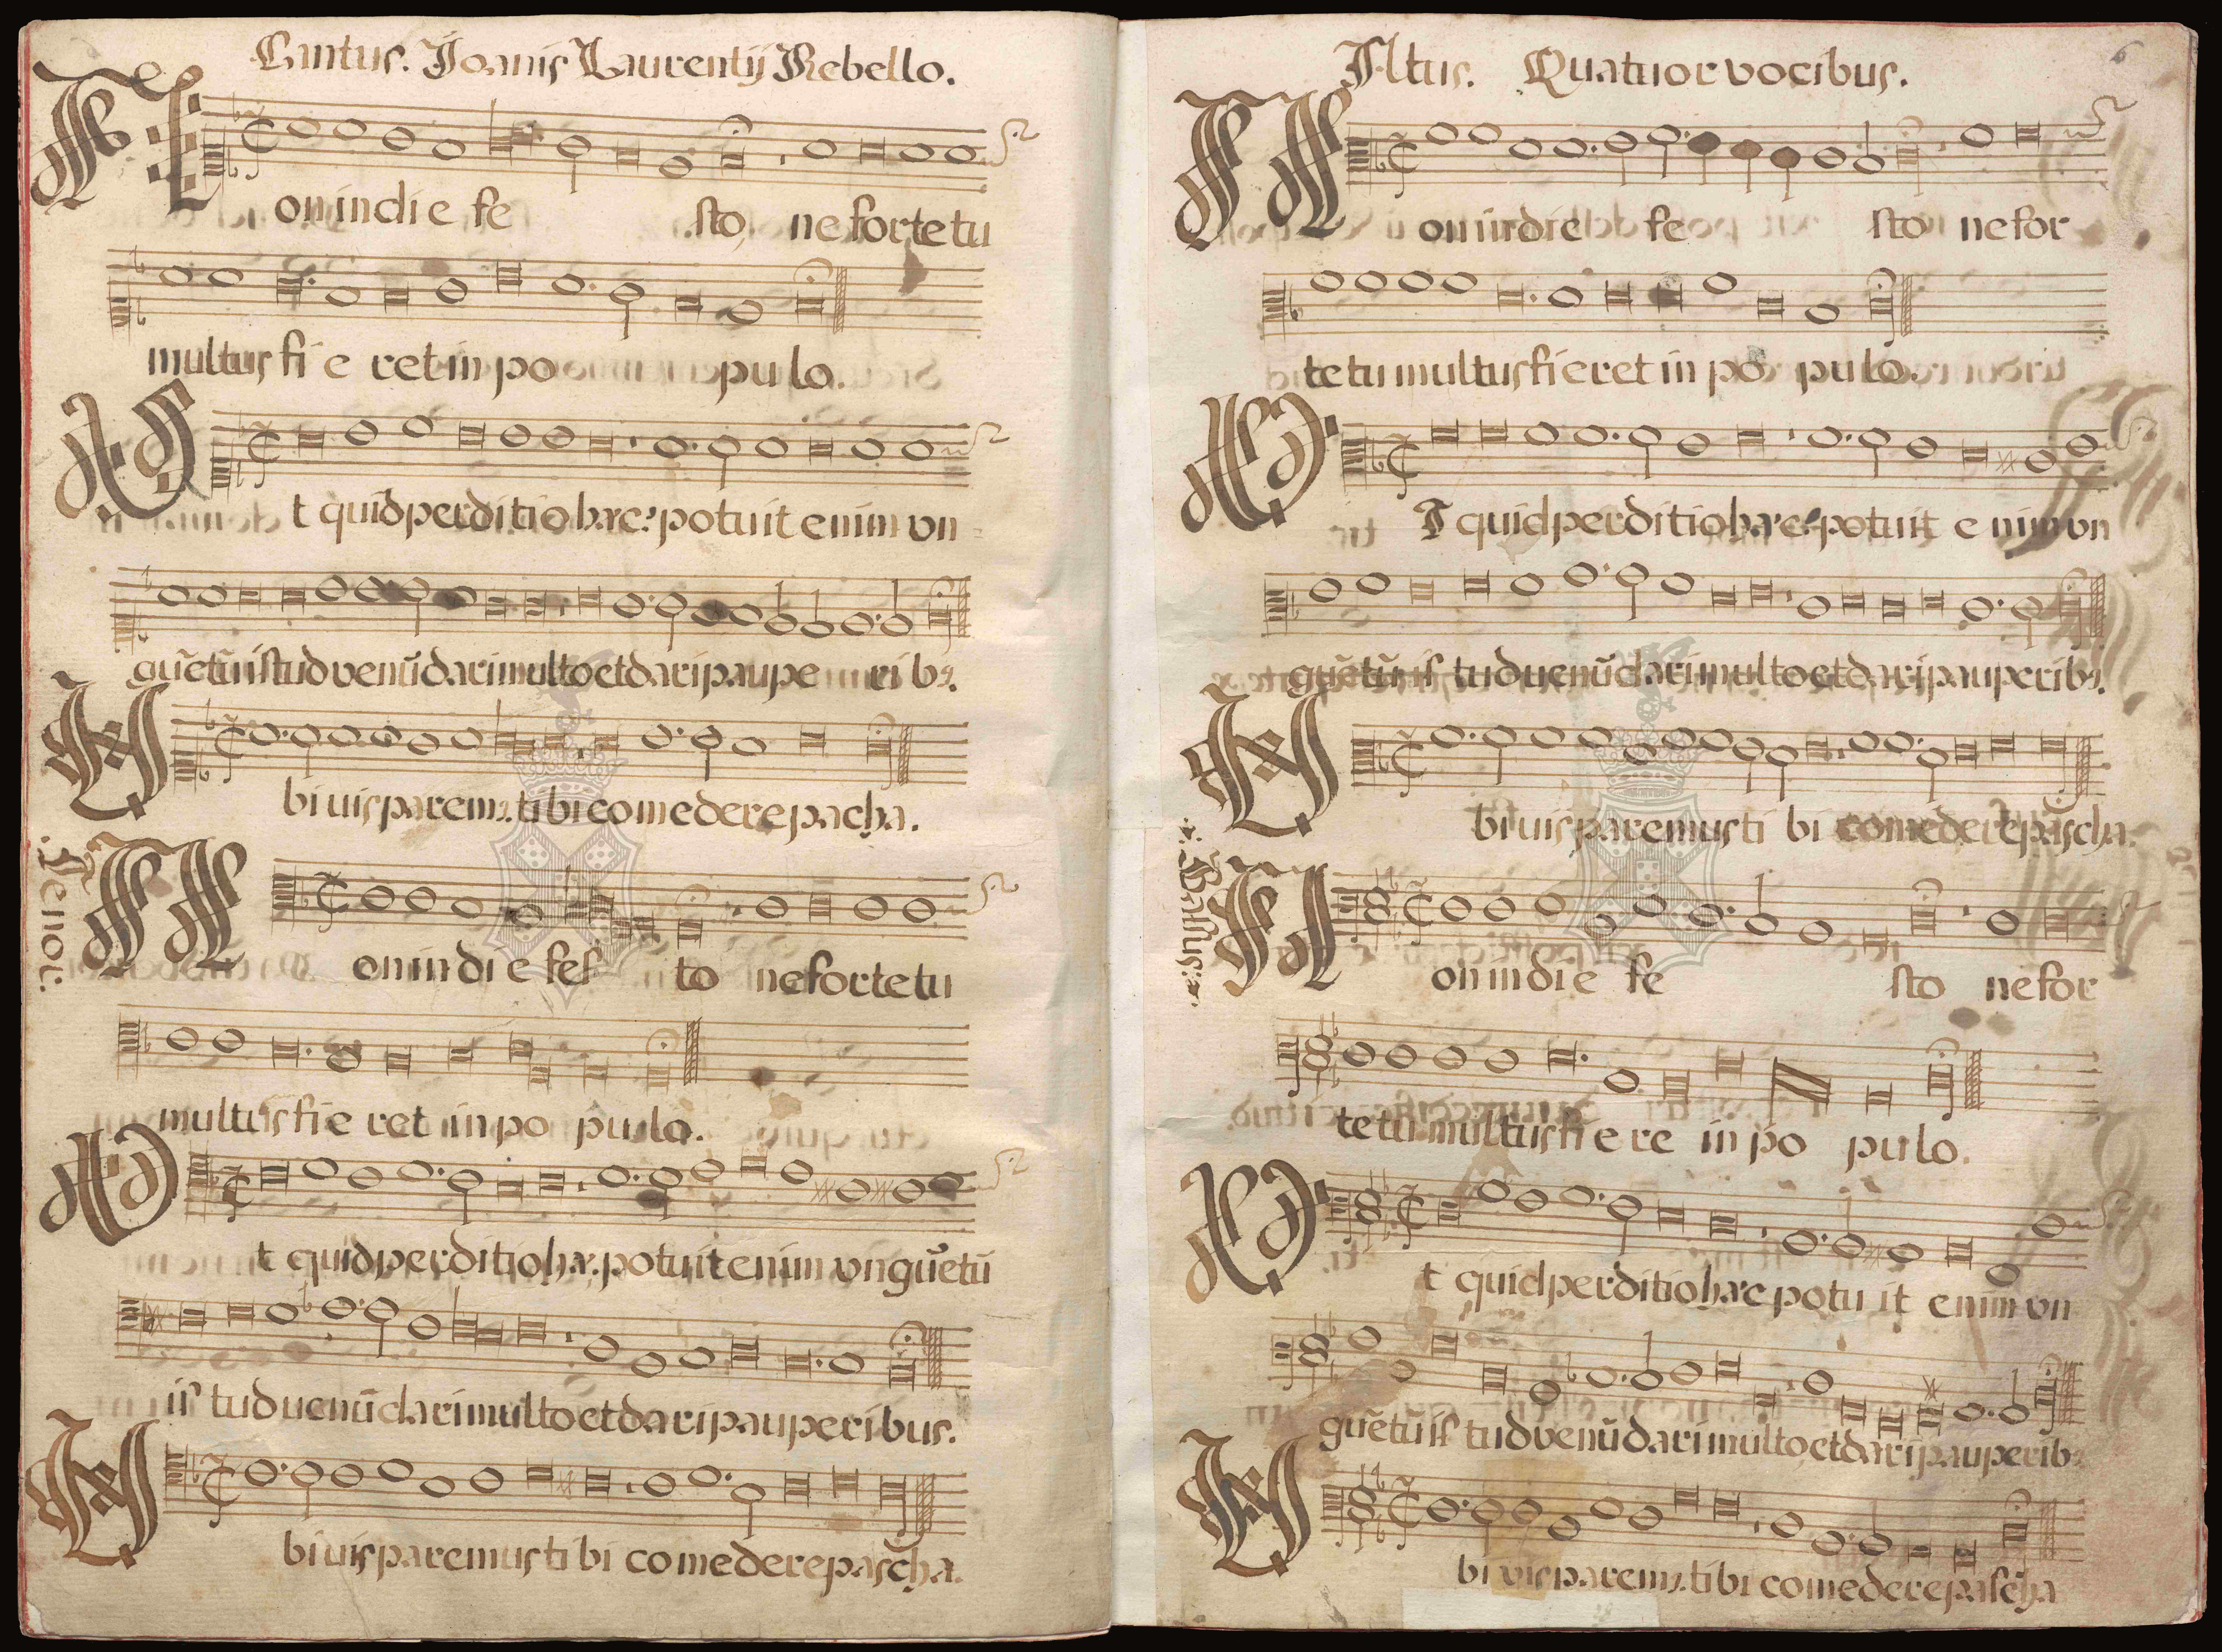 Cantus. Joanis Laurentij Rebello.
Non in di e fe sto, ne forte tu
multus fi e ret in po pu lo.
Ut quid perditio hæc? potuit enim vn
guẽtũ istud venũdari multo et dari paupe rib9.
Ubi uis parem9. tibi comedere pacha.
Tenor.
Non in di e fes to ne forte tu
multus fi e ret in po pu lo.
Ut quid perditio hæc. potuit enim vnguẽtũ
is tud uenũdari multo et dari pauperibus.
Ubi uis paremus ti bi comedere pascha.
Altus. Quatuor vocibus.
6
Non in die fe sto ne for
te tu multus fieret in po pulo.
UT quid perditio hæc? potuit e nim vn
guẽtũ is tud uenũdari multo et dari pauperib9.
Ubi uis paremus ti bi comedere pascha.
Bassus.
Non in di e fe sto ne for
te tu multus fi e re in po pu lo.
Ut quid perditio hæc potu it enim vn
guẽtũ is tud venũdari multo et dari pauperib9
Ubi vis parem9. tibi comedere pascha